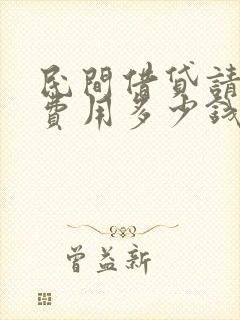 民間借貸請
費用多少錢
曾益新